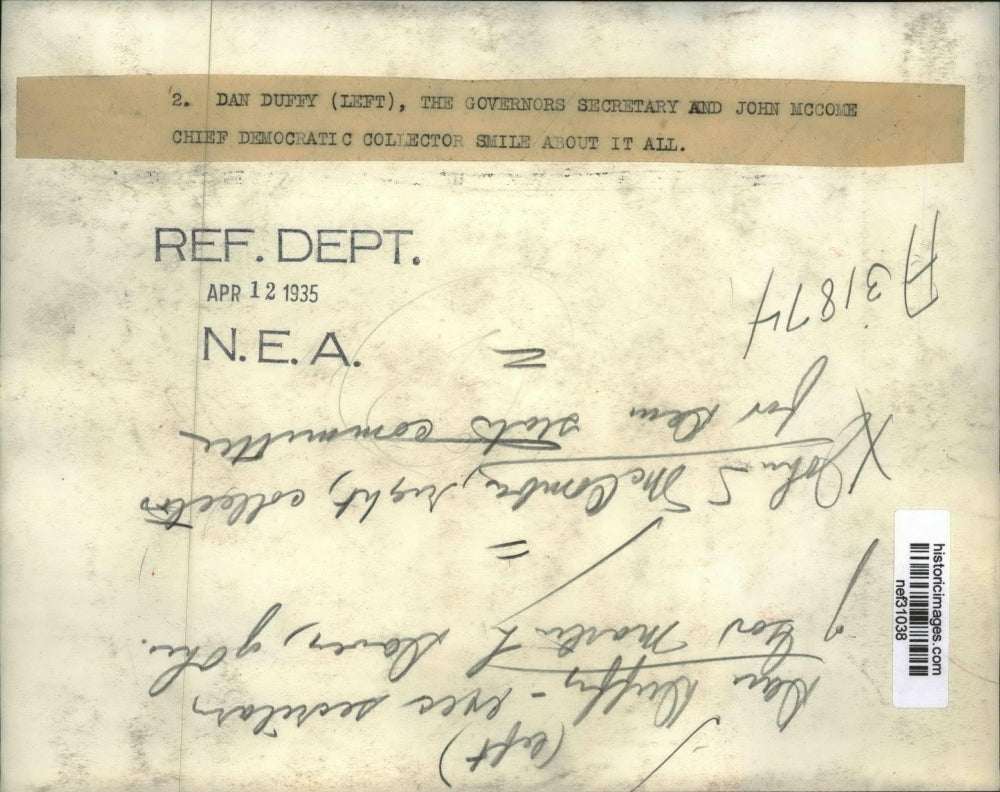 2. DAN DUFFY (LEFT), THE GOVERNORS SECRETARY AND JOHN MCCOME
CHIEF DEMOCRATIC COLLECTOR SMILE ABOUT IT ALL.
REF. DEPT.
APR 12 1935
N.E.A.
A 31874
(left)
Dan Duffy - exec secretary
of Gov Martin L Davey, of Ohio.
=
X John S McCombe, right, collector
for Dem state committee
=
historicimages.com
nef31038